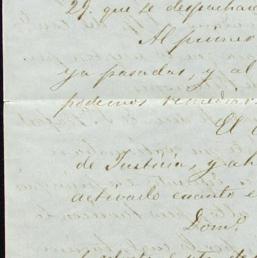 29, que se despachad
Al primer
ya pasadas, y al
podemos remediar
El
de Justicia, y ah
activarlo cuanto e
Dom.º